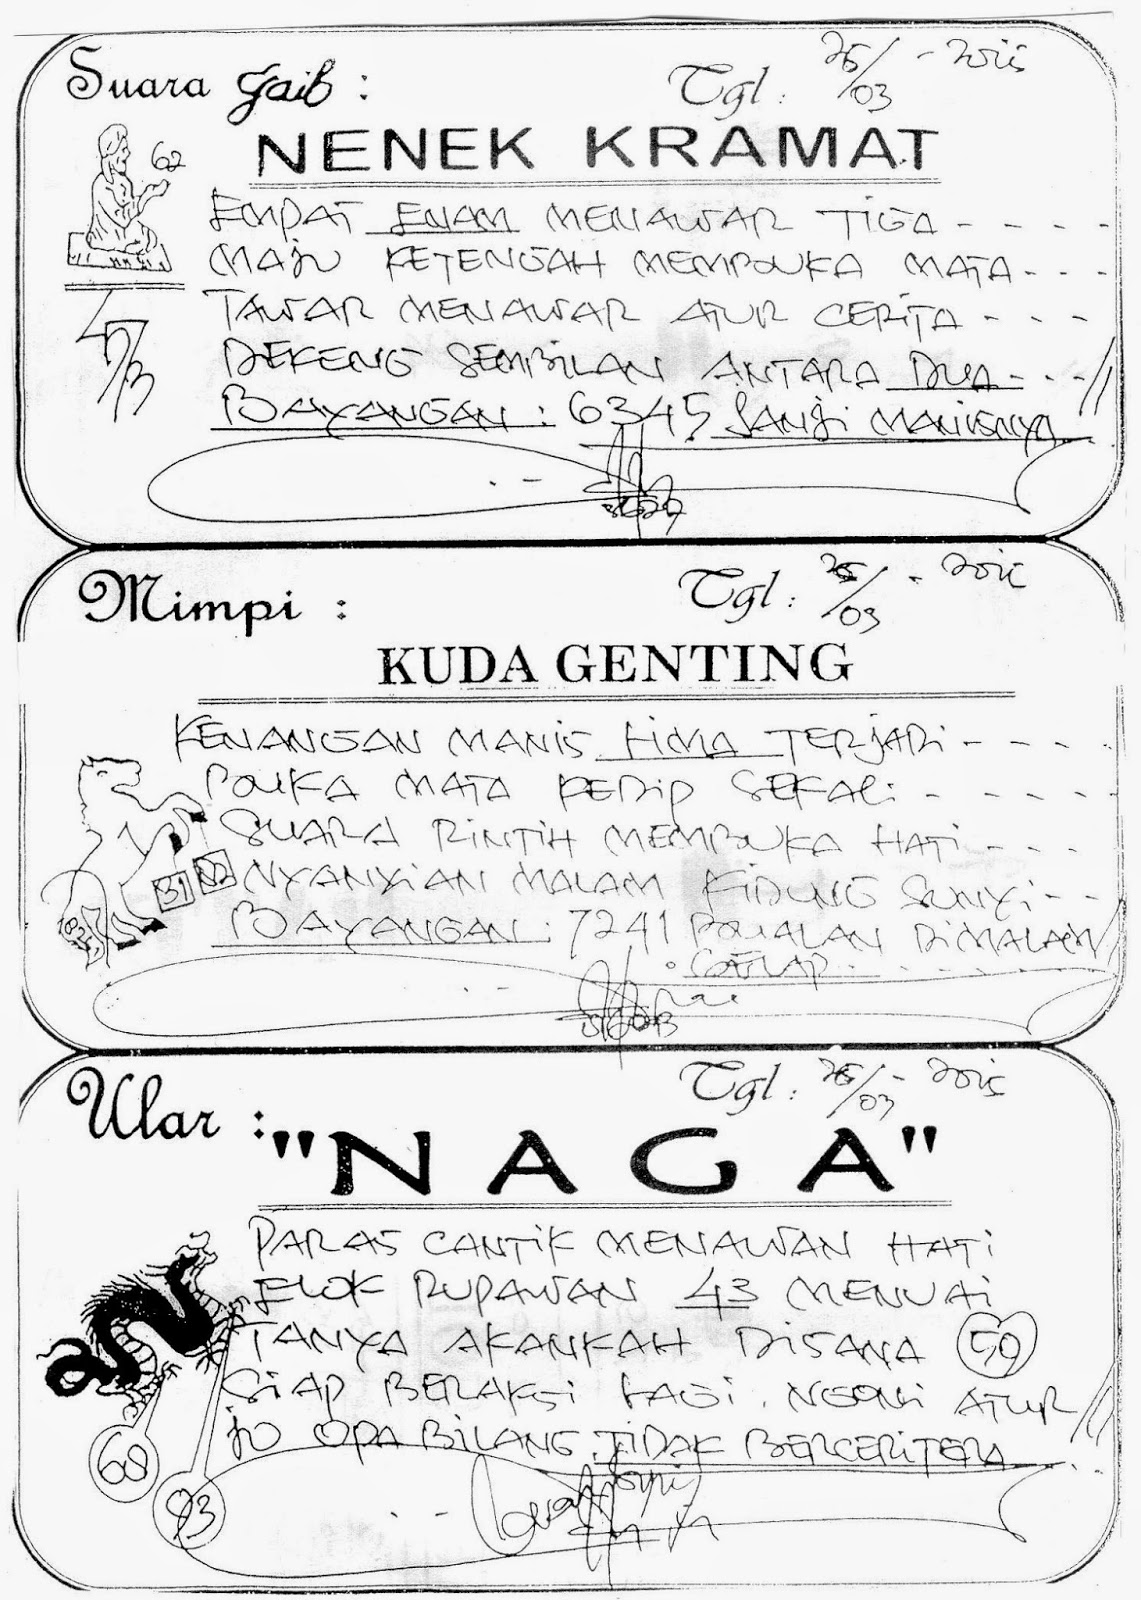 Suara Gaib :
Tgl : 25/03 - 2015
NENEK KRAMAT
62
EMPAT ENAM MENAWAR TIGA - - - -
MAJU KETENGAH MEMBUKA MATA - - -
TAWAR MENAWAR ATUR CERITA - - -
DEKENG SEMBILAN ANTARA DUA - - - //
BAYANGAN : 6345 JANJI MANISNYA
Mimpi :
Tgl : 25/03 - 2015
KUDA GENTING
KENANGAN MANIS LIMA TERJADI - - - -
BUKA MATA KEDIP SEKALI - - - - -
SUARA RINTIH MEMBUKA HATI - - -
31
NYANYIAN MALAM KIDUNG SUNYI - - -
BAYANGAN : 7241 BUALAN DIMALAM //
GELAP - - - - - -
Ular :
Tgl : 25/03 - 2015
"NAGA"
PARAS CANTIK MENAWAN HATI
ELOK RUPAWAN 43 MENUAI
TANYA AKANKAH DISANA 59
SIAP BERAKSI LAGI. NGONI ATUR //
JO OPA BILANG TIDAK BERCERITERA
68
93